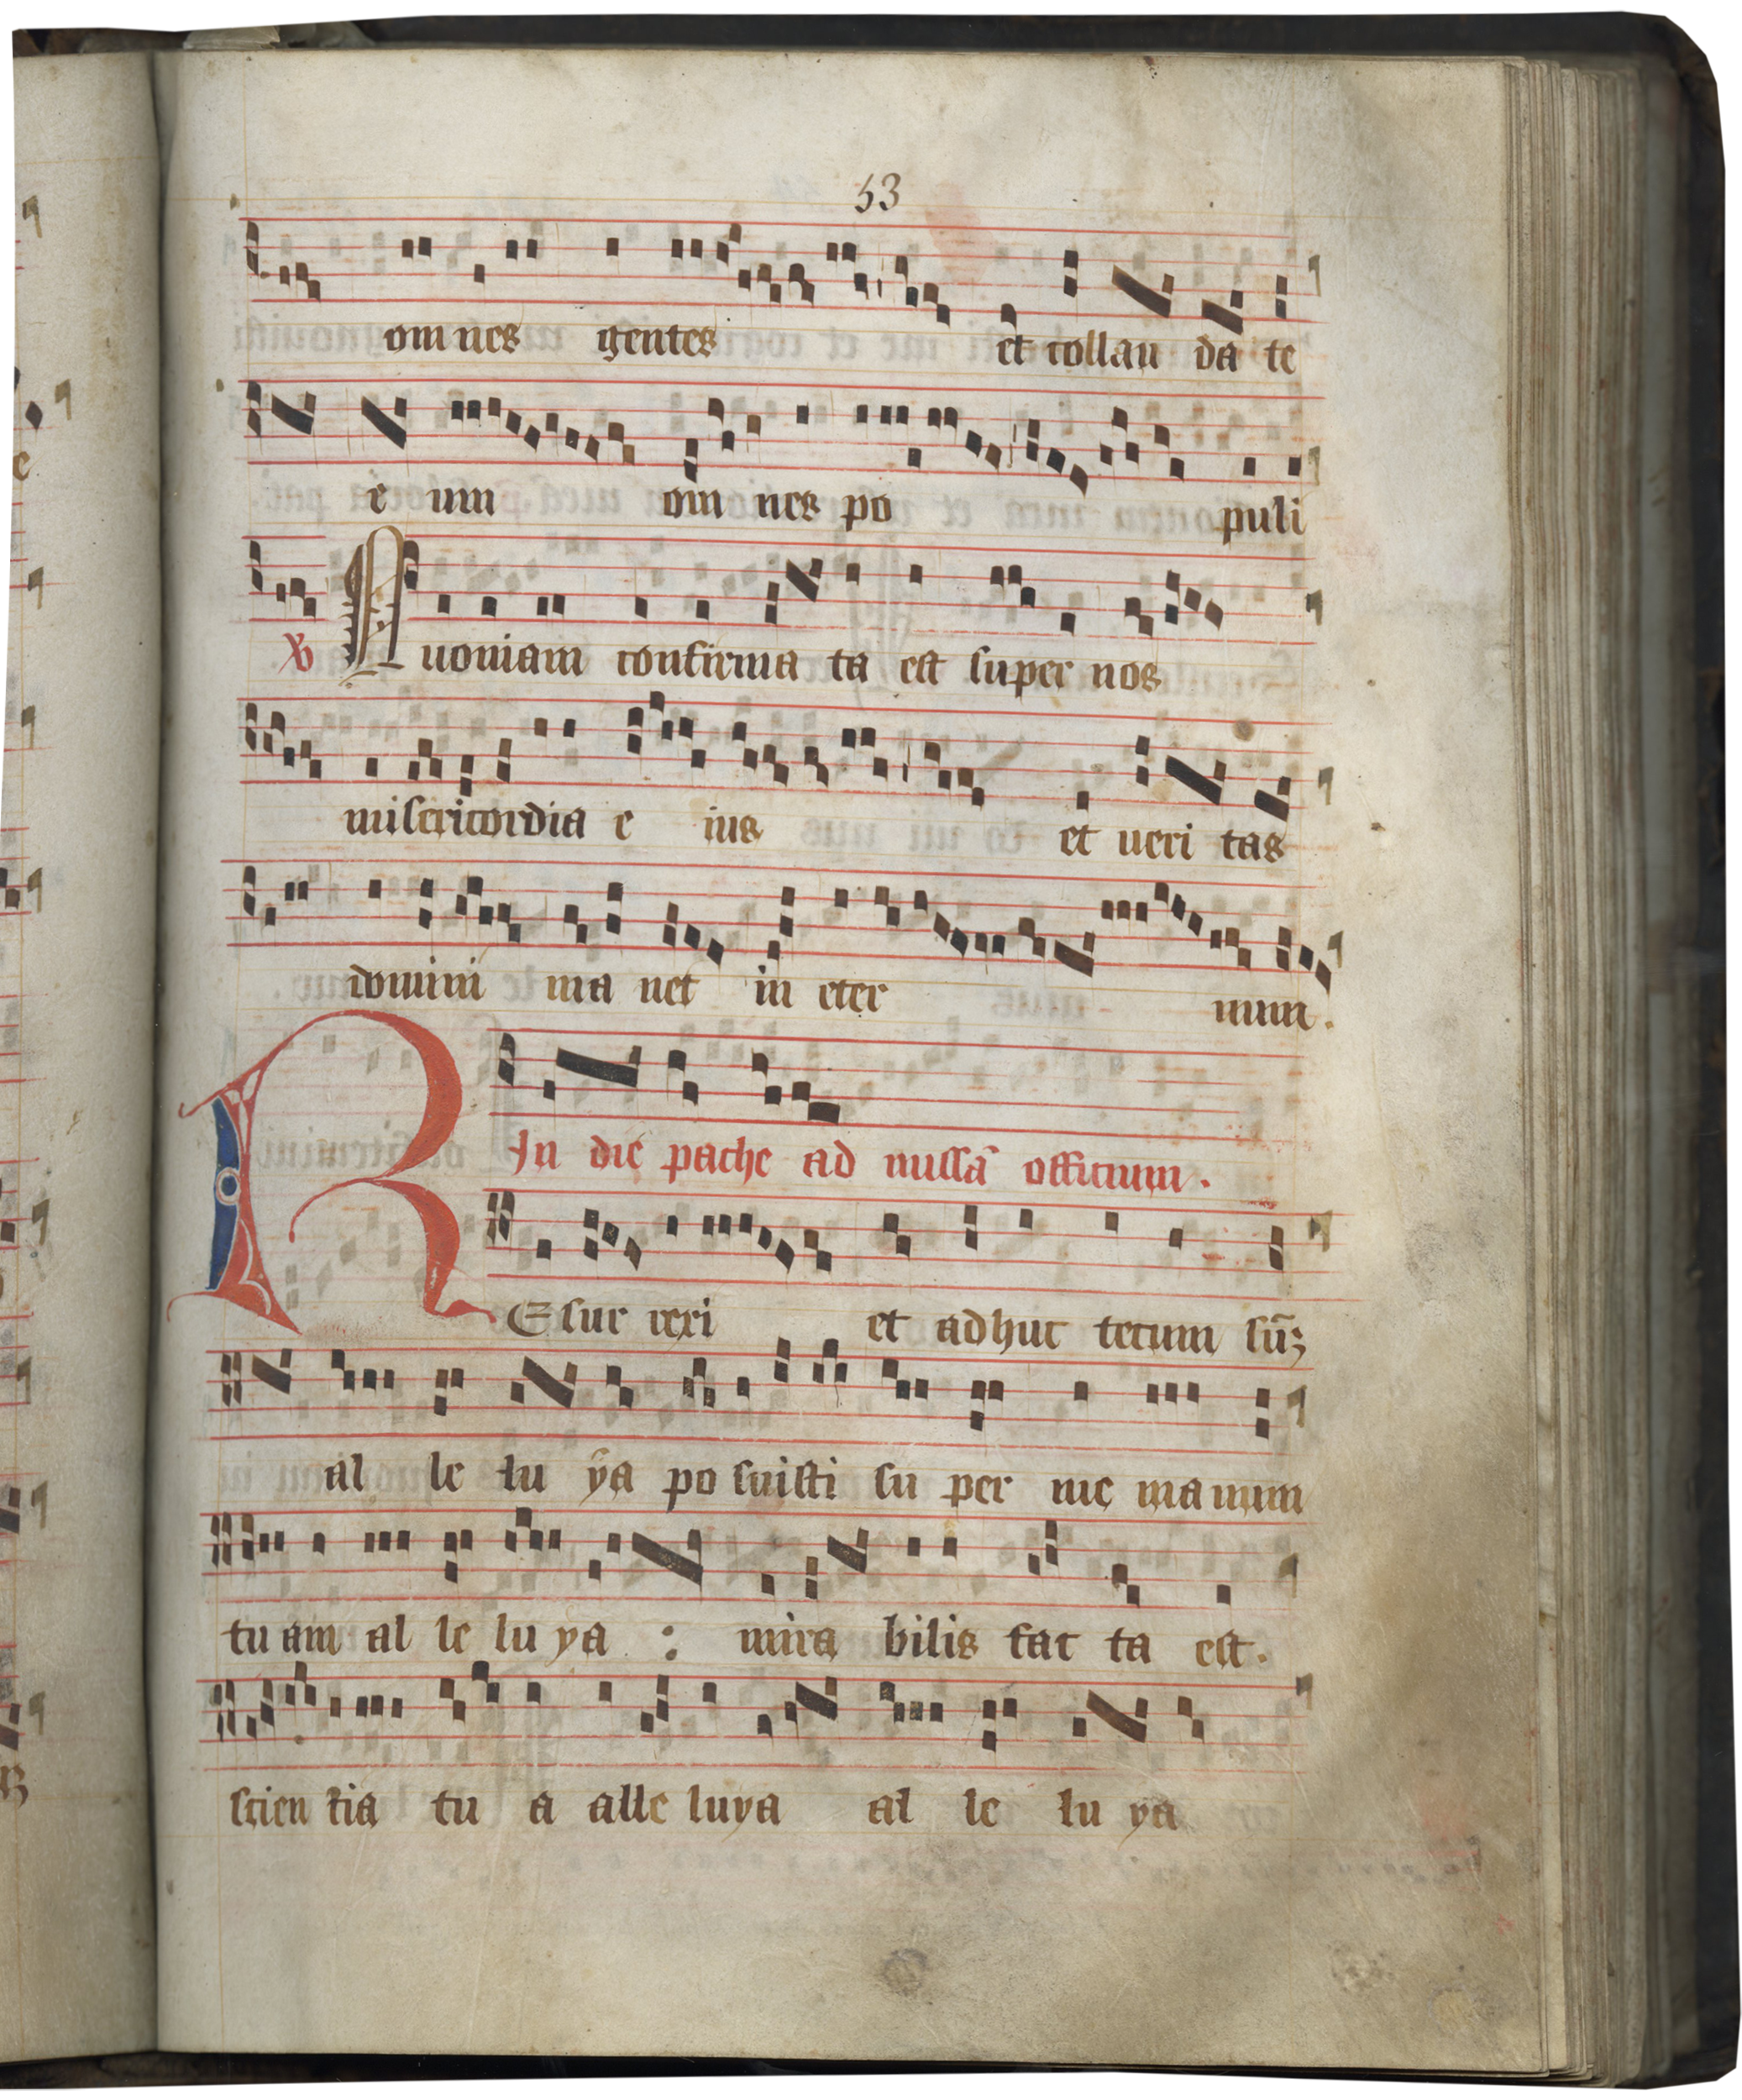 53
omnes gentes et collau da te
e um om nes po puli
℣ Quoniam confirma ta est super nos
misericordia e ius et ueri tas
domini ma net in eter num.
In die pache ad missā officium.
REsur rexi et adhuc tecum sū;
al le lu ya po suisti su per me manum
tuam al le lu ya : mira bilis fac ta est.
scien tia tu a alle luya al le lu ya